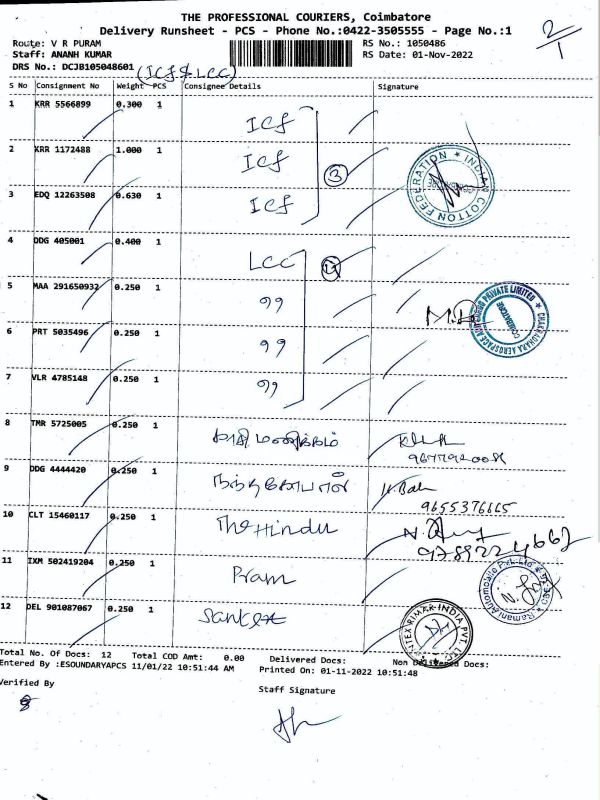 THE PROFESSIONAL COURIERS, Coimbatore
Delivery Runsheet - PCS - Phone No.:0422-3505555 - Page No.:1
2/1
Route: V R PURAM
Staff: ANANH KUMAR
DRS No.: DCJB105048601
RS No.: 1050486
RS Date: 01-Nov-2022
(ICf & LCC)
S No Consignment No Weight PCS Consignee Details Signature
1 KRR 5566899 0.300 1 ICf
2 KRR 1172488 1.000 1 ICf
3
INDIAN COTTON FEDERATION
3 EDQ 12263508 0.630 1 ICf
4 DDG 405001 0.400 1 LCC
5 MAA 291650932 0.250 1 99
CHAKRADHARA AEROSPACE AND CARGO PRIVATE LIMITED
COIMBATORE
6 PRT 5035496 0.250 1 99
7 VLR 4785148 0.250 1 99
8 TMR 5725005 0.250 1
9 DDG 4444420 0.250 1
9655376665
10 CLT 15460117 0.250 1 The Hindu
9789224662
11 IXM 502419204 0.250 1 Pram
Ramani Automobile Pvt. Ltd
12 DEL 901087067 0.250 1
RIMAR INDIA PVT. LTD.
Total No. Of Docs: 12 Total COD Amt: 0.00 Delivered Docs: Non Delivered Docs:
Entered By :ESOUNDARYAPCS 11/01/22 10:51:44 AM Printed On: 01-11-2022 10:51:48
Verified By
Staff Signature